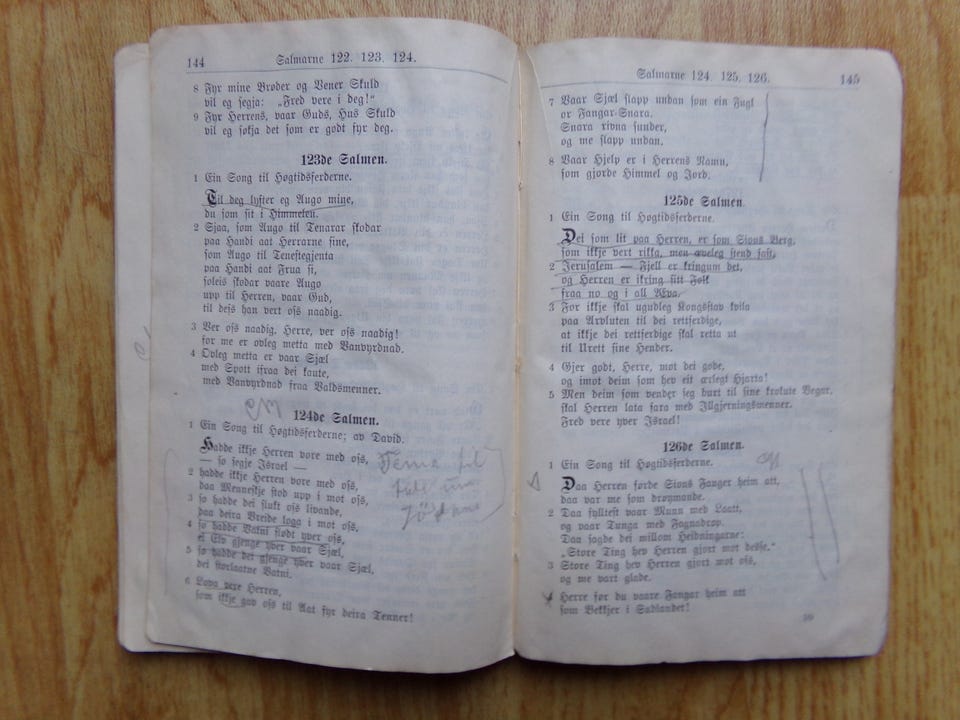 144 Salmarne 122. 123. 124.
8 Fyr mine Brøder og Vener Skuld
vil eg segja: „Fred vere i deg!“
9 Fyr Herrens, vaar Guds, Hus Skuld
vil eg søkja det som er godt fyr deg.
123de Salmen.
1 Ein Song til Høgtidsferderne.
Til deg lyfter eg Augo mine,
du som sit i Himmelen.
2 Sjaa, som Augo til Tenarar skodar
paa Handi aat Herrarne sine,
som Augo til Tenestegjenta
paa Handi aat Frua si,
soleis skodar vaare Augo
upp til Herren, vaar Gud,
til dess han vert oss naadig.
3 Ver oss naadig, Herre, ver oss naadig!
for me er ovleg metta med Vanvyrdnad.
4 Ovleg metta er vaar Sjæl
med Spott ifraa dei kaute,
med Vanvyrdnad fraa Valdsmenner.
124de Salmen.
1 Ein Song til Høgtidsferderne; av David.
Hadde ikkje Herren vore med oss,
— so segje Israel —
2 hadde ikkje Herren vore med oss,
daa Menneskje stod upp i mot oss,
3 so hadde dei slukt oss livande,
daa deira Vreide loga i mot oss,
4 so hadde Vatni flødt yver oss,
ei Elv gjenge yver vaar Sjæl,
5 so hadde det gjenge yver vaar Sjæl,
dei storlaatne Vatni.
6 Lova vere Herren,
som ikkje gav oss til Aat fyr deira Tenner!
Tema til
Salmarne 124. 125. 126. 145
7 Vaar Sjæl slapp undan som ein Fugl
or Fangar-Snara.
Snara rivna sunder,
og me slapp undan.
8 Vaar Hjelp er i Herrens Namn,
som gjorde Himmel og Jord.
125de Salmen.
1 Ein Song til Høgtidsferderne.
Dei som lit paa Herren, er som Sions Berg,
som ikkje vert rikka, men æveleg stend fast.
2 Jerusalem — Fjell er kringum det,
og Herren er ikring sitt Folk
fraa no og i all Æva.
3 For ikkje skal ugudleg Kongsstav kvila
paa Arvluten til dei rettferdige,
at ikkje dei rettferdige skal retta ut
til Urett sine Hender.
4 Gjer godt, Herre, mot dei gode,
og imot deim som hev eit ærlegt Hjarta!
5 Men deim som vender seg burt til sine krokute Vegar,
skal Herren lata fara med Illgjerningsmenner.
Fred vere yver Israel!
126de Salmen.
1 Ein Song til Høgtidsferderne.
Daa Herren førde Sions Fangar heim att,
daa var me som drøymande.
2 Daa fylltest vaar Munn med Laatt,
og vaar Tunga med Fagnadrop.
Daa sagde dei millom Heidningarne:
„Store Ting hev Herren gjort mot desse.“
3 Store Ting hev Herren gjort mot oss,
og me vart glade.
4 Herre før du vaare Fangar heim att
som Bekkjer i Sudlandet!
10